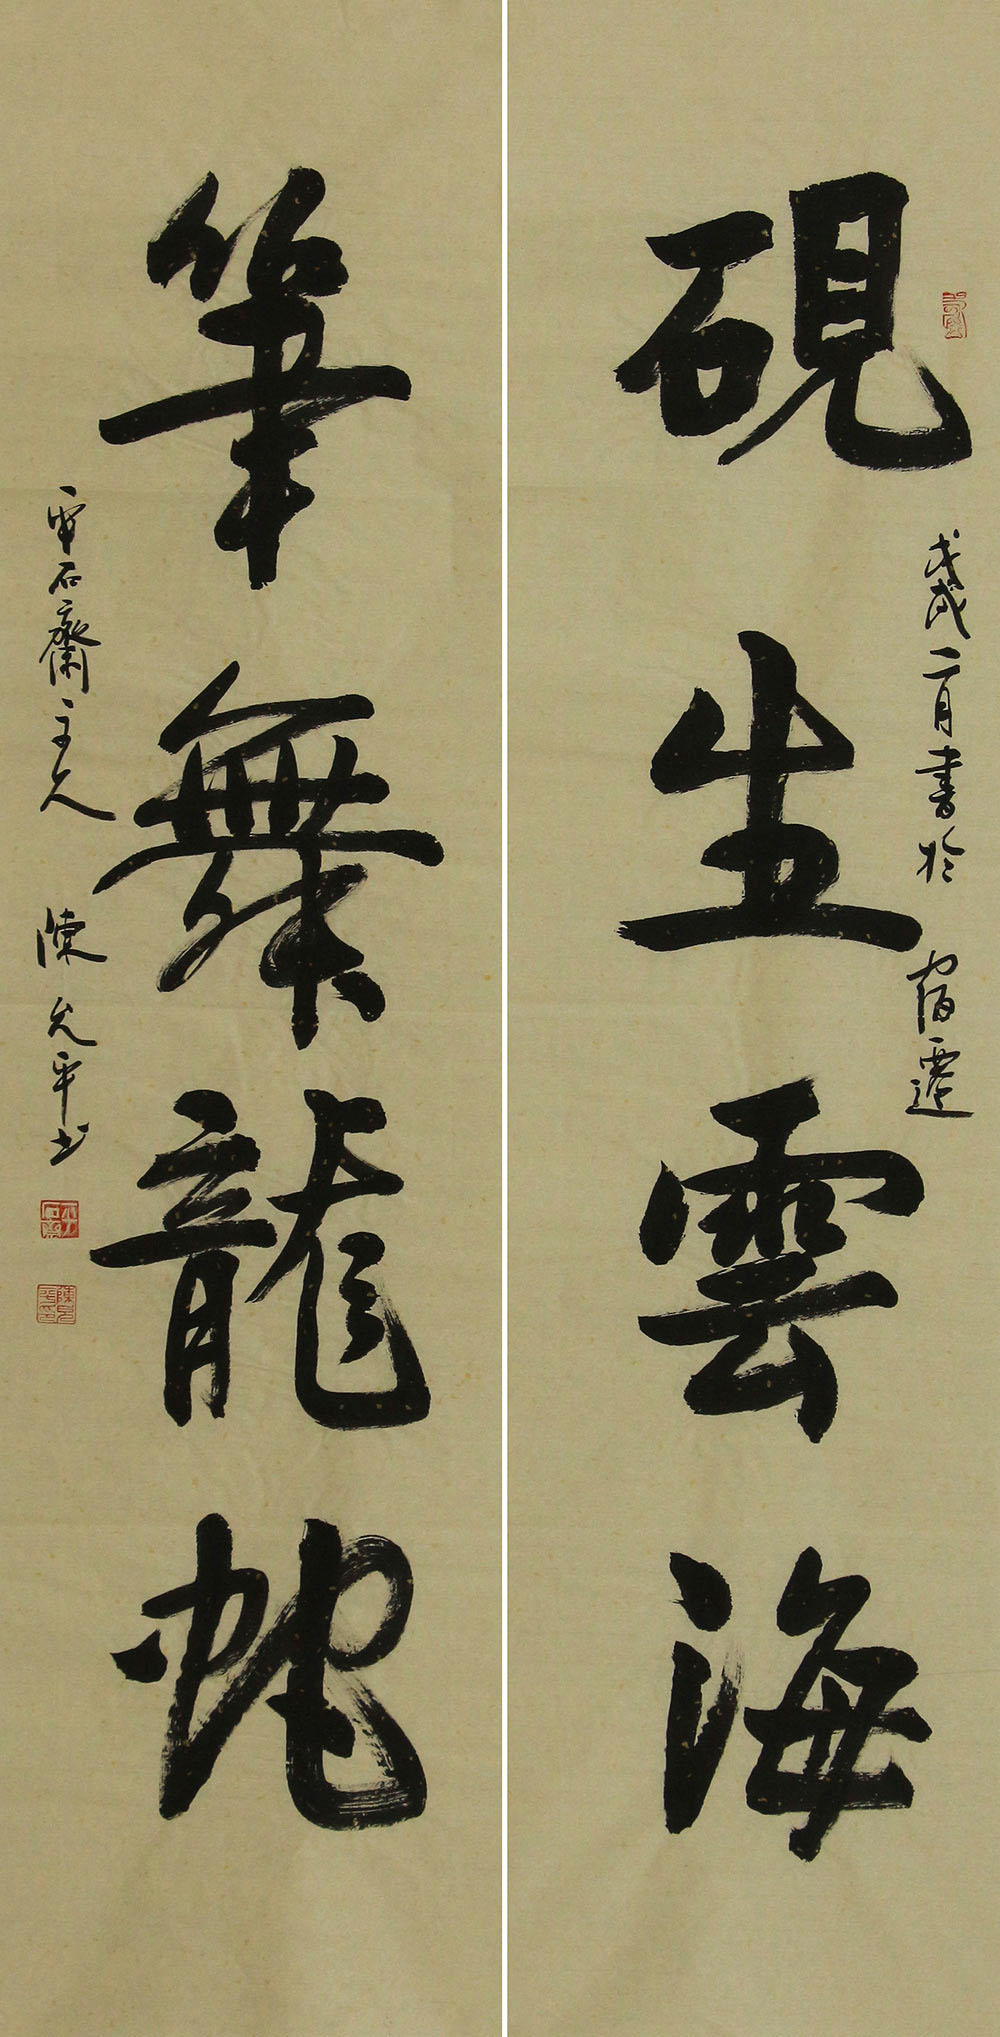 硯生雲海
戊戌二月書於宿遷
筆舞龍蛇
石齋主人陳允平書